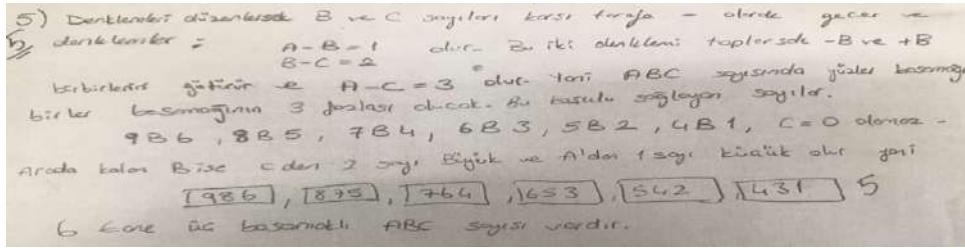 5) Denklemleri düzenlersek B ve C sayıları karşı tarafa - olarak geçer ve
b) denklemler = A-B=1 olur. Bu iki denklemi toplarsak -B ve +B
B-C=2
birbirlerini götürür ve A-C=3 olur. Yani ABC sayısında yüzler basamağı
birler basamağının 3 fazlası olucak. Bu koşulu sağlayan sayılar.
9B6, 8B5, 7B4, 6B3, 5B2, 4B1, C=0 olamaz -
Arada kalan B ise C den 2 sayı Büyük ve A'dan 1 sayı küçük olur yani
986, 875, 764, 653, 542, 431 5
6 tane üç basamaklı ABC sayısı vardır.